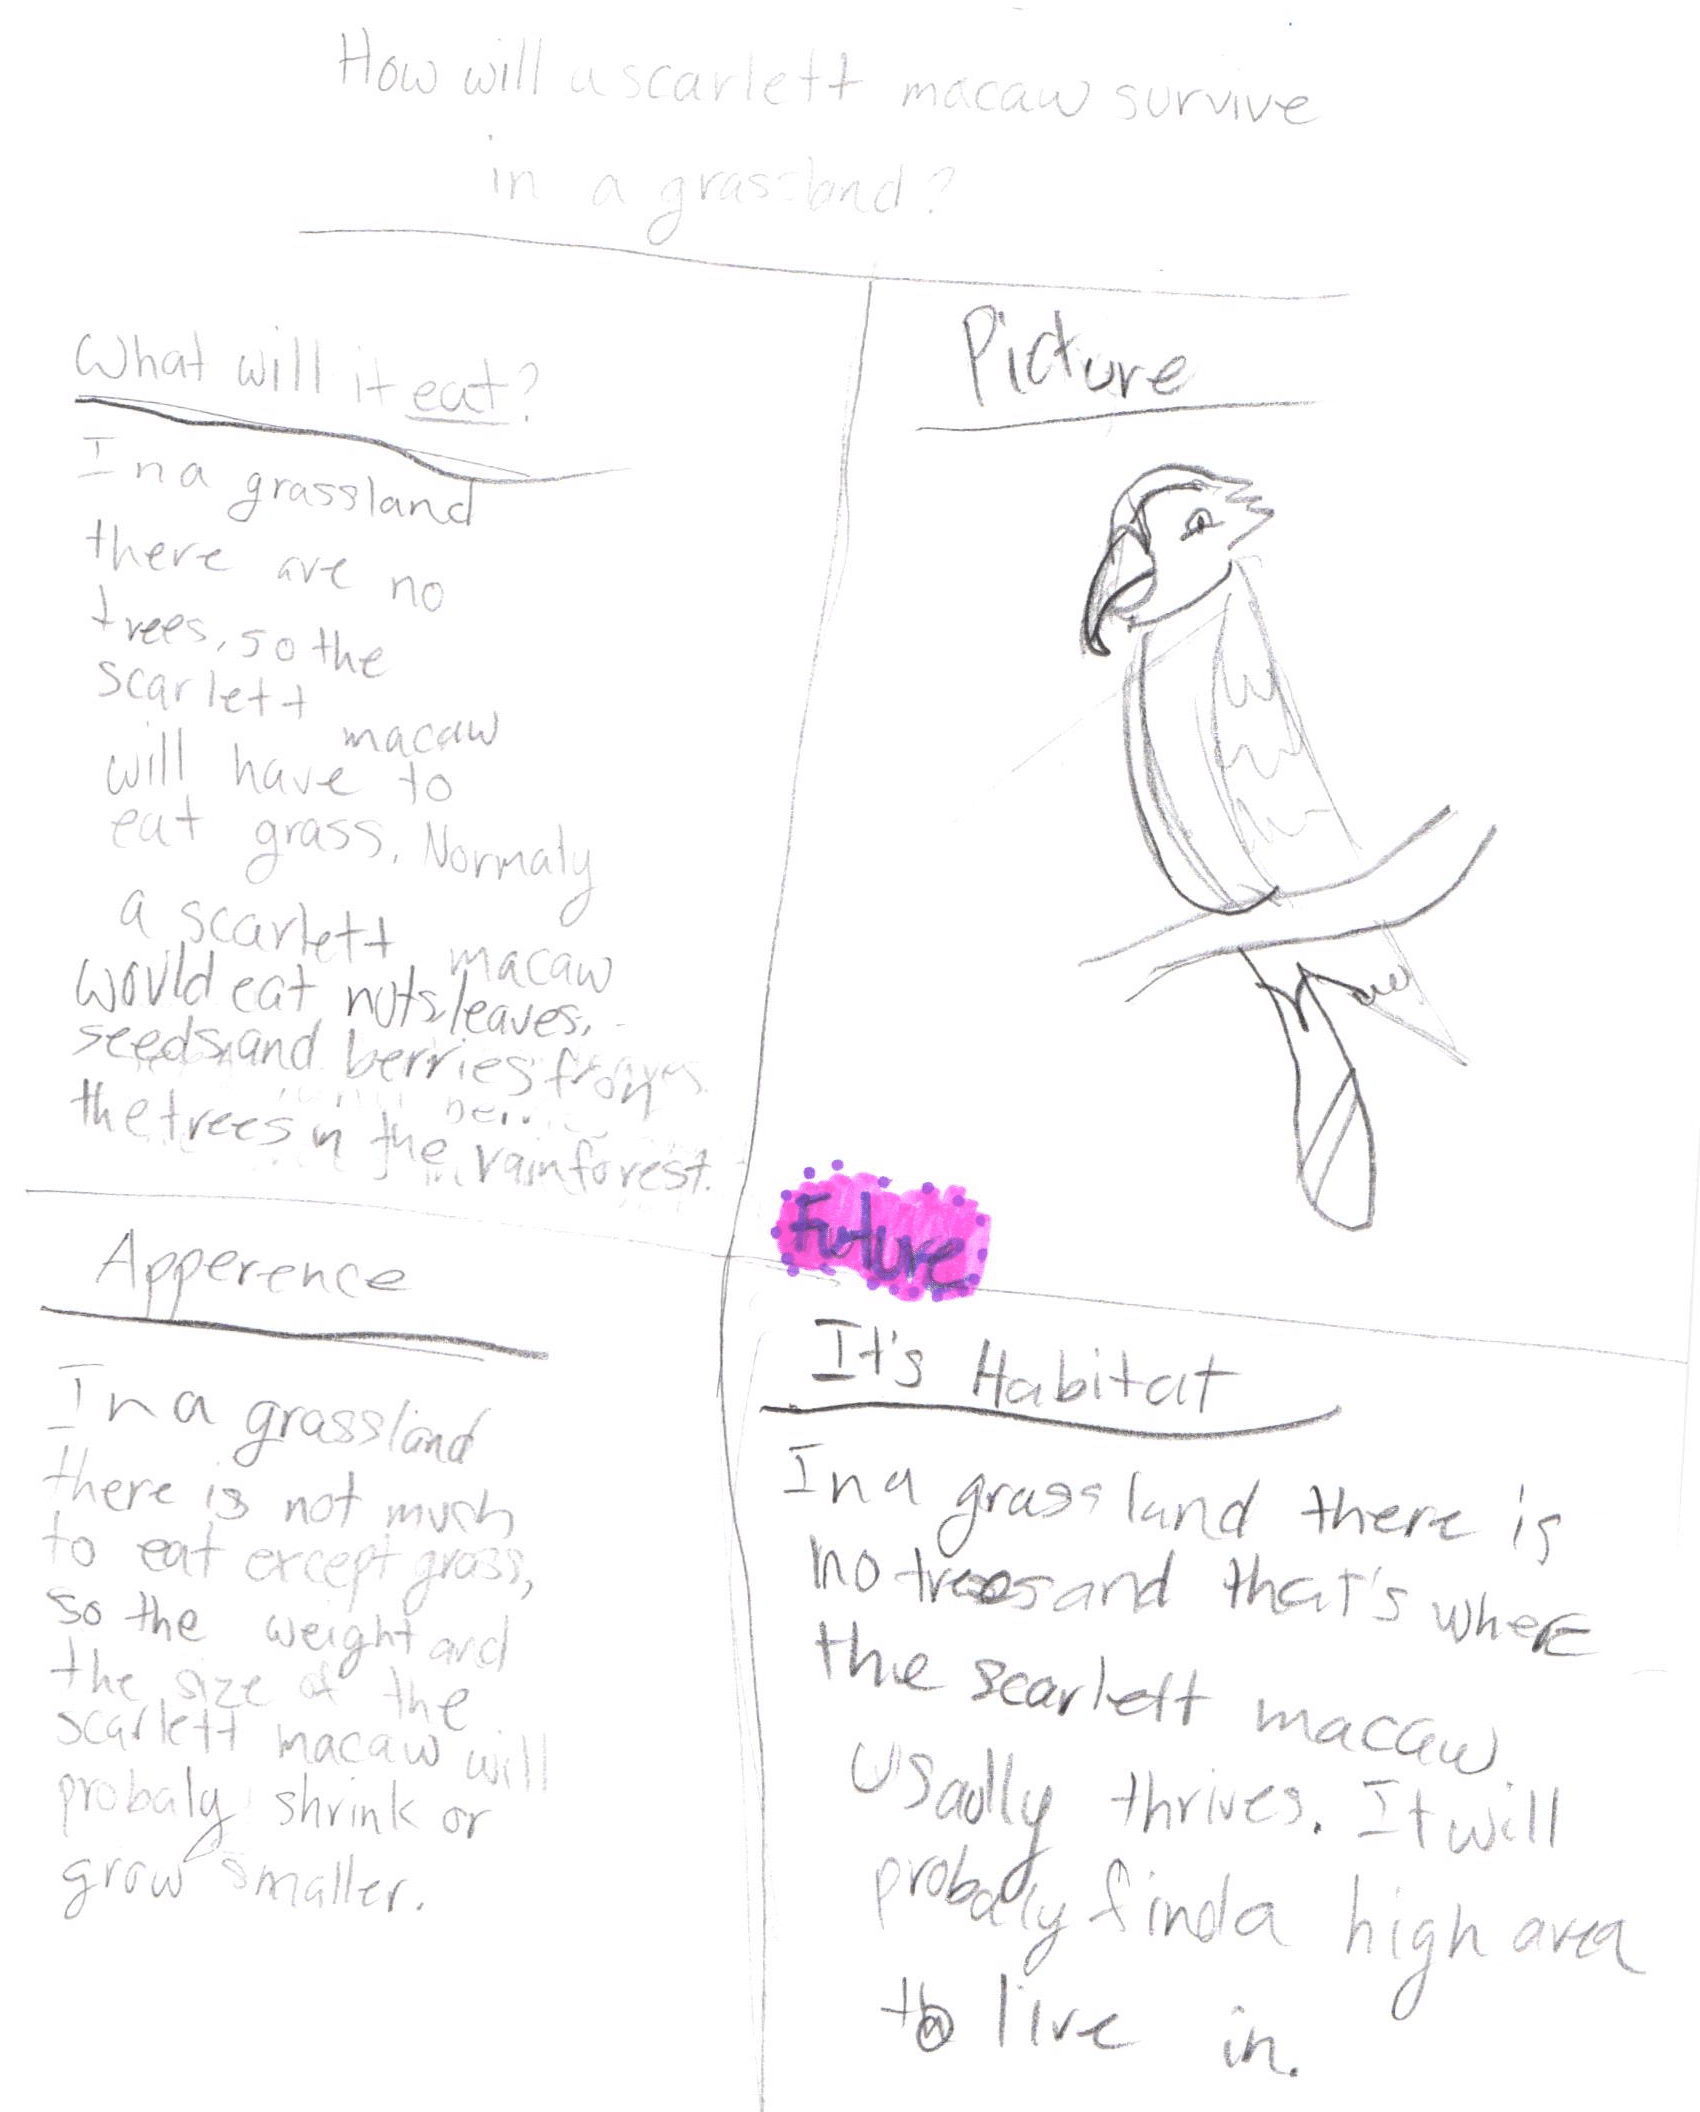 How will a scarlett macaw survive
in a grassland?
What will it eat?
In a grassland
there are no
trees, so the
scarlett macaw
will have to
eat grass. Normaly
a scarlett macaw
would eat nuts, leaves,
seeds, and berries from
the trees in the rainforest.
Picture
Future
Apperence
In a grassland
there is not much
to eat except grass,
so the weight and
the size of the
scarlett macaw will
probaly shrink or
grow smaller.
It's Habitat
In a grassland there is
no trees and that's where
the scarlett macaw
usually thrives. It will
probaly find a high area
to live in.